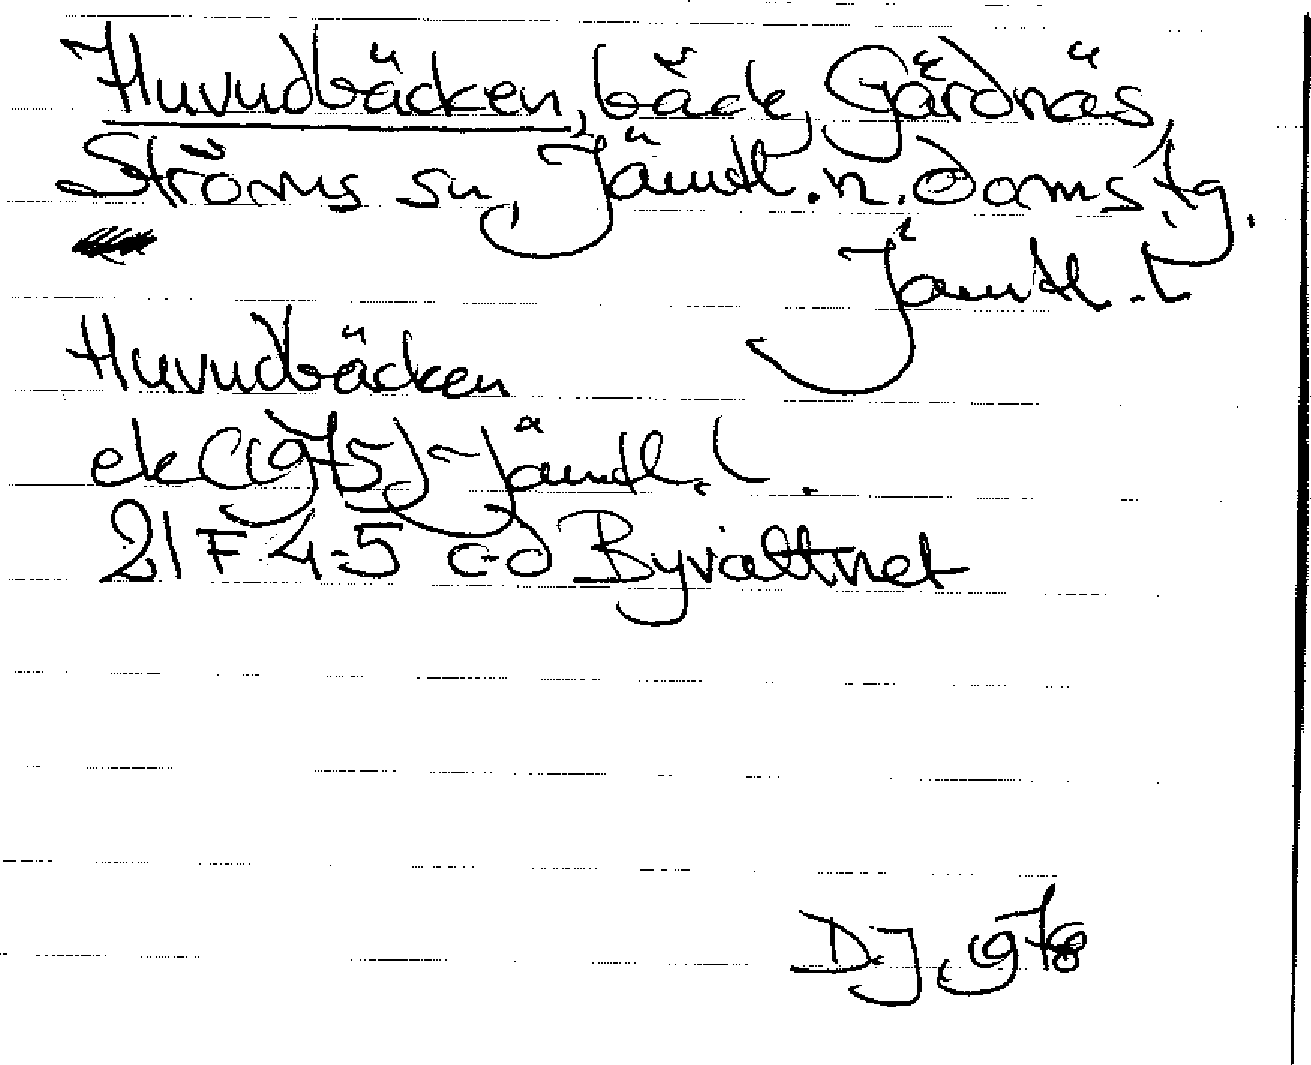 Huvudbäcken, bäck, Gärdnäs,
Ströms sn, Jämtl. n. doms.tg.
Jämtl. l
Huvudbäcken
ek (1975) Jämtl. l.
21 F 4-5 c-d Byvattnet
DJ 1978